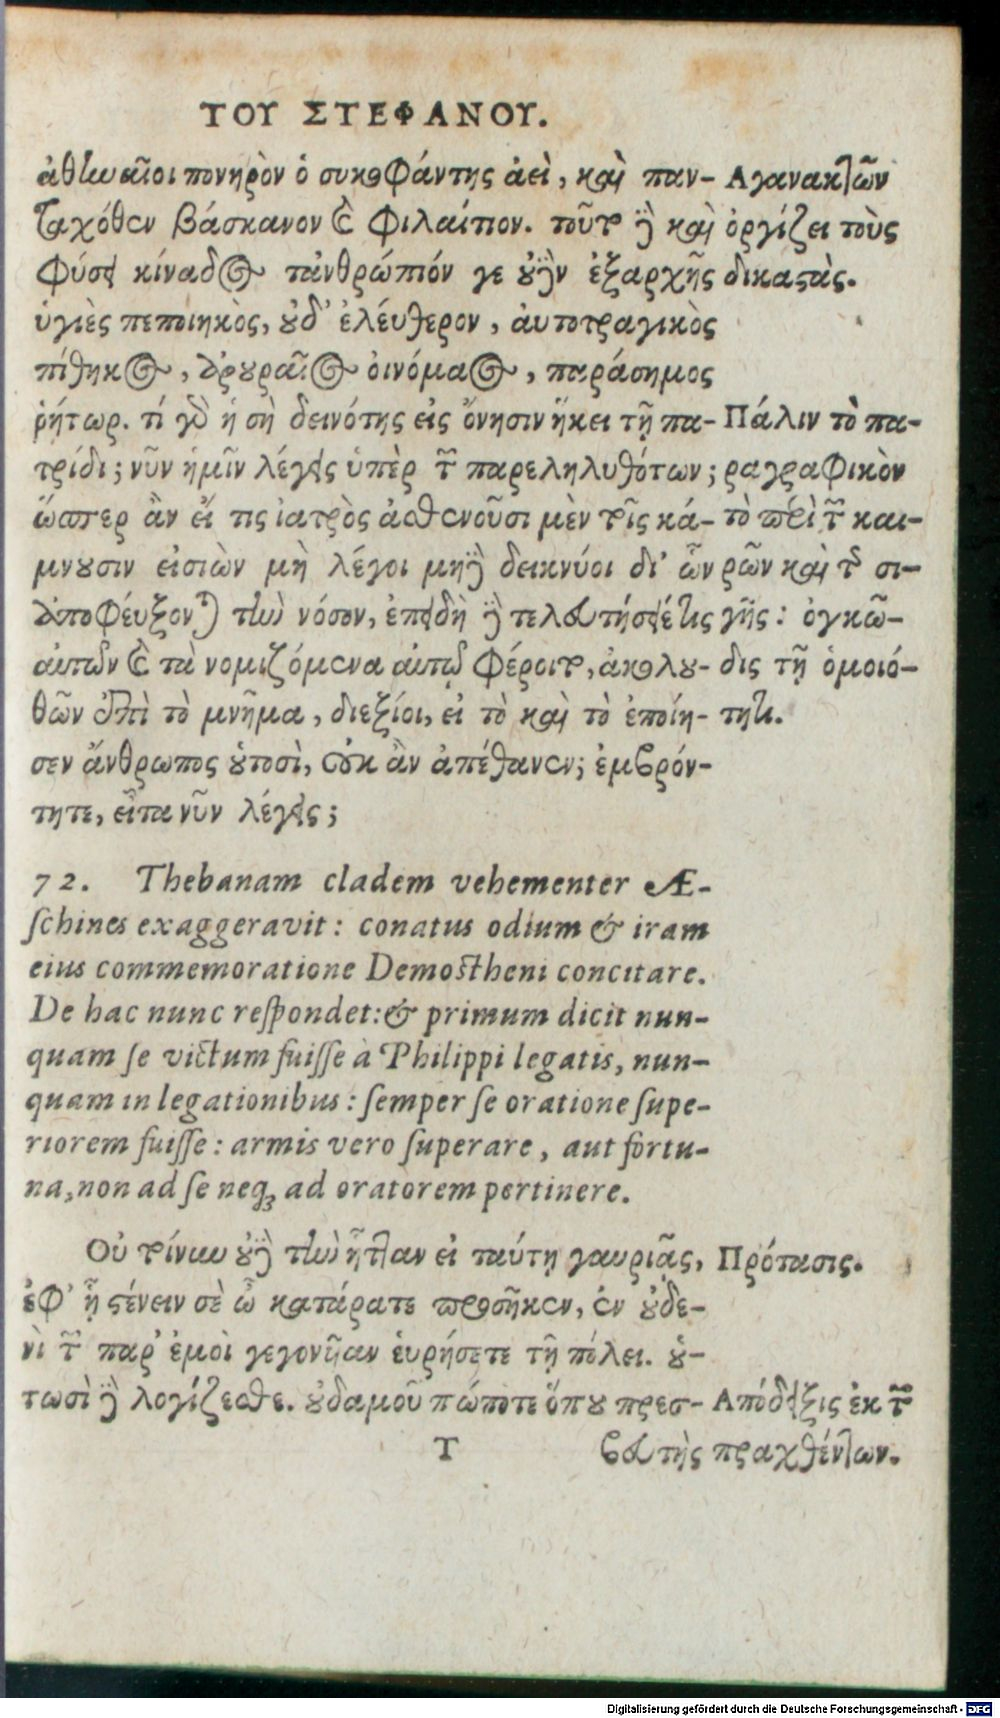 ΤΟΥ ΣΤΕΦΑΝΟΥ.
ἀθηναῖοι πονηρὸν ὁ συκοφάντης ἀεὶ, καὶ παν-
ταχόθεν βάσκανον καὶ φιλαίτιον. τοῦτο δὲ καὶ
φύσει κίναδος τἀνθρώπιόν γε οὐδὲν ἐξαρχῆς
ὑγιὲς πεποιηκὸς, οὐδ' ἐλέυθερον, ἀυτοτραγικὸς
πίθηκος, ἀρουραῖος οἰνόμαος, παράσημος
ῥήτωρ. τί γὰρ ἡ σὴ δεινότης εἰς ὄνησιν ἥκει τῇ πα-
τρίδι; νῦν ἡμῖν λέγεις ὑπὲρ τῶν παρεληλυθότων;
ὥσπερ ἂν εἴ τις ἰατρὸς ἀσθενοῦσι μὲν τοῖς κά-
μνουσιν εἰσιὼν μὴ λέγοι μηδὲ δεικνύοι δι' ὧν
ἀποφέυξονται τὴν νόσον, ἐπειδὴ δὲ τελευτήσειέ τις
αὐτῶν καὶ τὰ νομιζόμενα αὐτῷ φέροιτο, ἀκολου-
θῶν ἐπὶ τὸ μνῆμα, διεξίοι, εἰ τὸ καὶ τὸ ἐποίη-
σεν ἄνθρωπος οὑτοσὶ, οὐκ ἂν ἀπέθανεν; ἐμβρόν-
τητε, εἶτα νῦν λέγεις;
Αγανακτῶν
ὀργίζει τοὺς
δικαστάς.
Πάλιν τὸ πα-
ραγραφικὸν
τὸ περὶ τῶν και-
ρῶν καὶ τῆς σι-
γῆς: ὀγκῶ-
δις τῇ ὁμοιό-
τητι.
72. Thebanam cladem vehementer Æ-
schines exaggeravit: conatus odium & iram
eius commemoratione Demostheni concitare.
De hac nunc respondet: & primum dicit nun-
quam se victum fuisse à Philippi legatis, nun-
quam in legationibus: semper se oratione supe-
riorem fuisse: armis vero superare, aut fortu-
na, non ad se neq; ad oratorem pertinere.
Οὐ τοίνυν οὐδὲ τὴν ἧτταν εἰ ταύτῃ γαυριᾷς,
ἐφ' ᾗ στένειν σὲ ὦ κατάρατε προσῆκεν, ἐν οὐδε-
νὶ τῶν παρ' ἐμοὶ γεγονυῖαν ἑυρήσετε τῇ πόλει. οὑ-
τωσὶ δὲ λογίζεσθε. οὐδαμοῦ πώποτε ὅπου πρεσ-
Πρότασις.
Απόδειξις ἐκ τῶν
πραχθέντων.
Τ βευτὴς
Digitalisierung gefördert durch die Deutsche Forschungsgemeinschaft - DFG